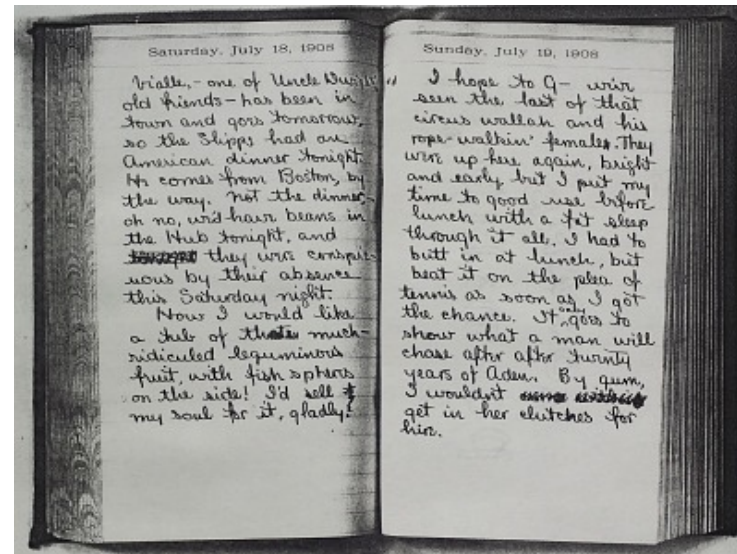 Saturday, July 18, 1908
Vialle, - one of Uncle
old friends - has been in
town and goes tomorrow,
so the Slipps had an
American dinner tonight.
He comes from Boston, by
the way. Not the dinner, -
oh no, we'd have beans in
the Hub tonight, and
they were conspic-
uous by their absence
this Saturday night.
Now I would like
a tub of much-
ridiculed leguminous
fruit, with fish spheres
on the side! I'd sell
my soul for it, gladly!
Sunday, July 19, 1908
I hope to G- we've
seen the last of that
circus wallah and his
rope-walkin' females. They
were up here again, bright
and early but I put my
time to good use before
lunch with a fat sleep
through it all. I had to
butt in at lunch, but
beat it on the plea of
tennis as soon as I got
the chance. It only goes to
show what a man will
chase after after twenty
years of Aden. By gum,
I wouldn't
get in her clutches for
hire.